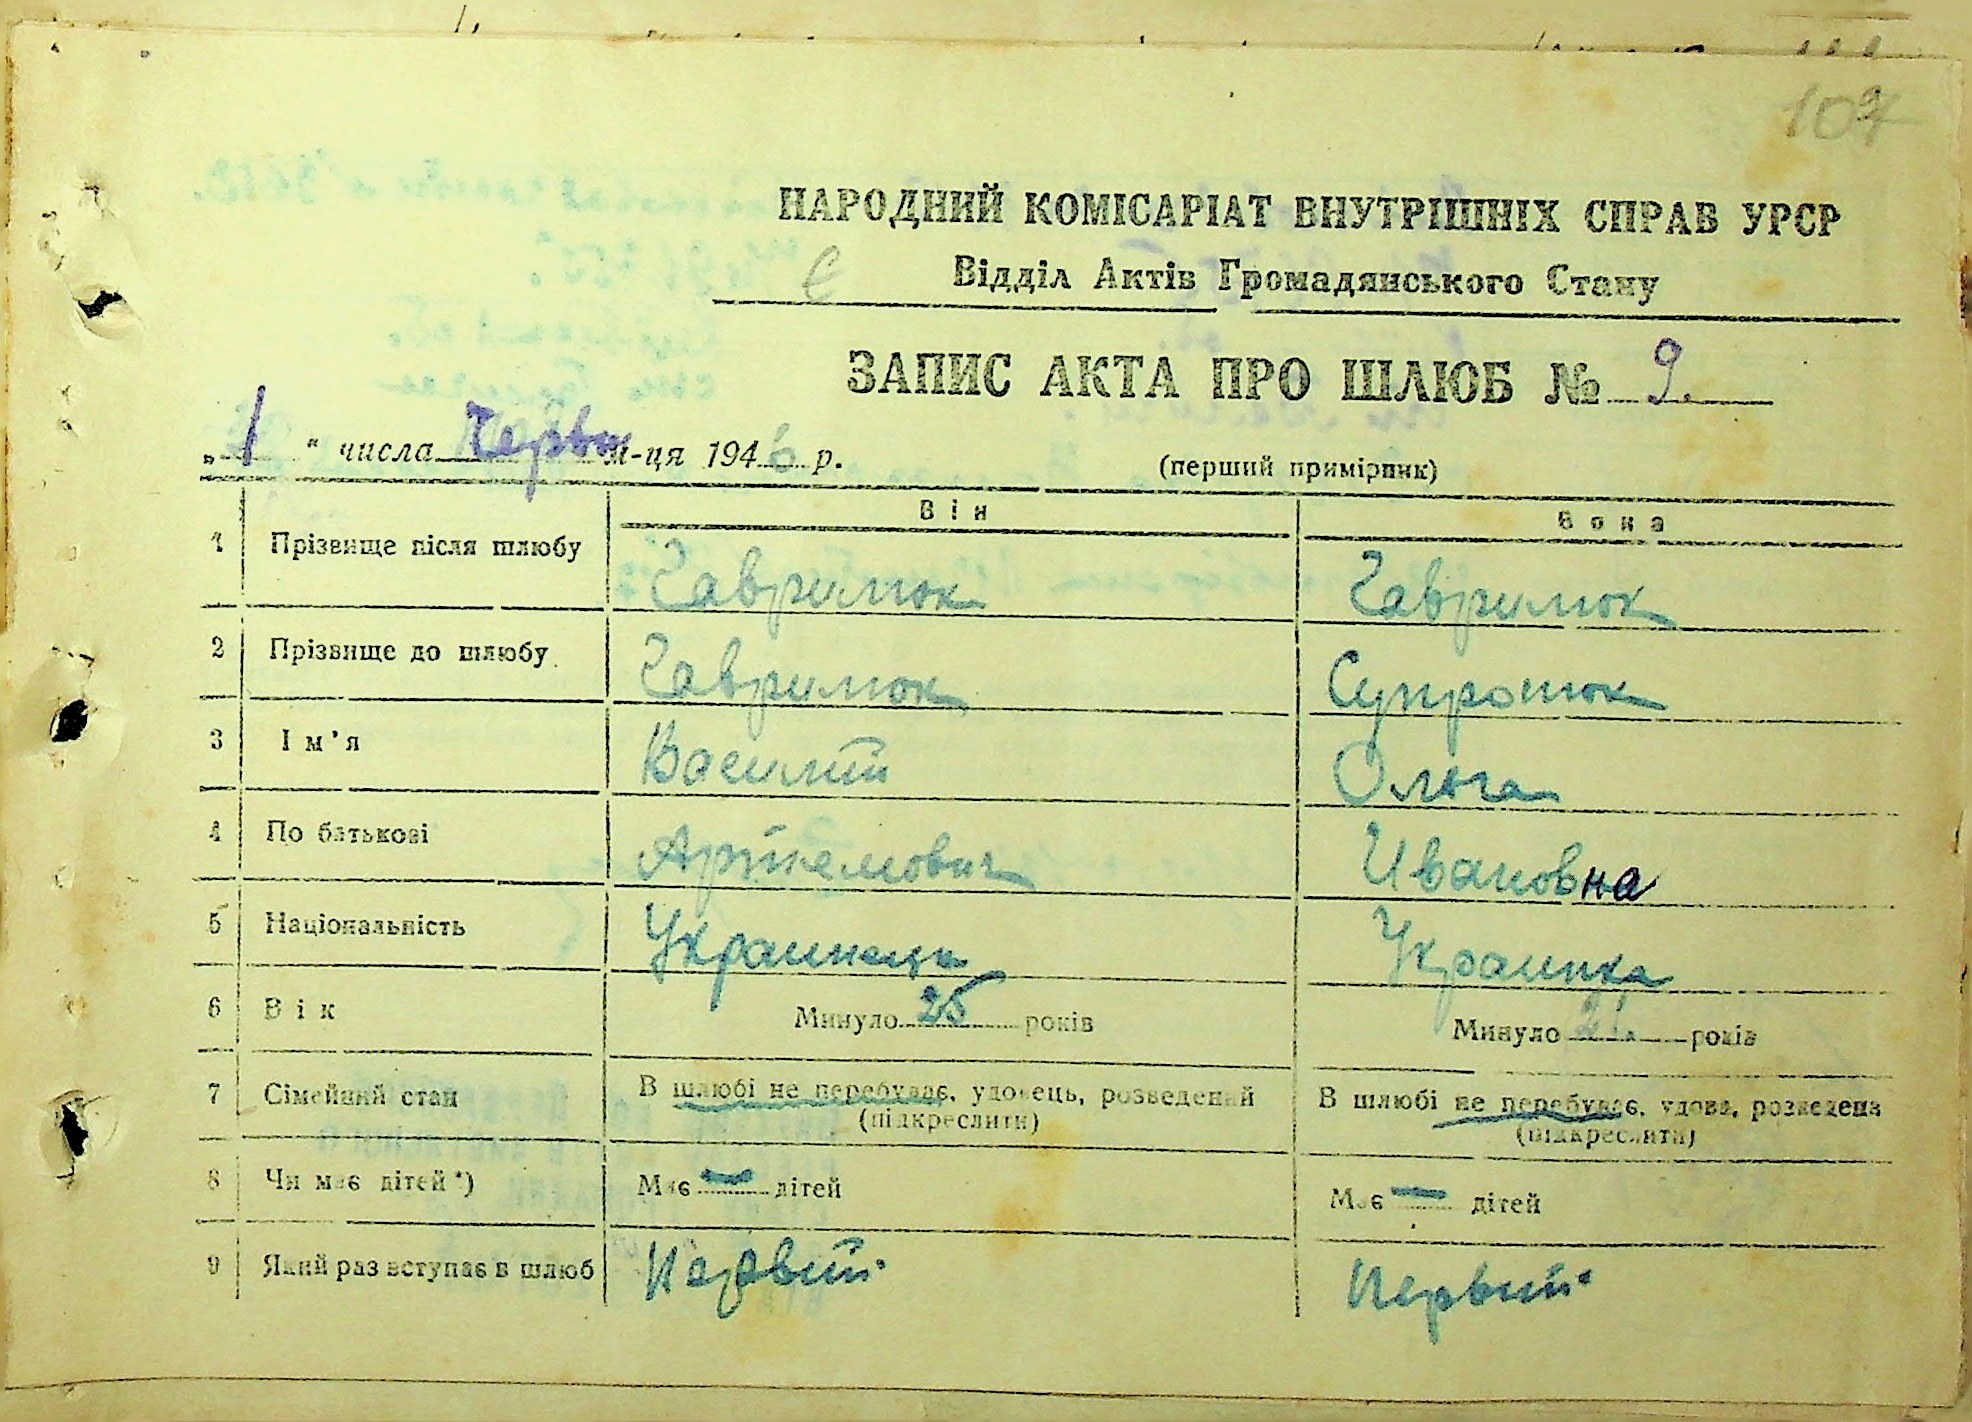 НАРОДНИЙ КОМІСАРІАТ ВНУТРІШНІХ СПРАВ УРСР
Відділ Актів Громадянського Стану
ЗАПИС АКТА ПРО ШЛЮБ № 9.
„1“ числа Червн м-ця 1946 р.
(перший примірник)
Він Вона
1 Прізвище після шлюбу Гаврилюк Гаврилюк
2 Прізвище до шлюбу Гаврилюк Супронюк
3 Ім'я Василий Ольга
4 По батькові Артемович Ивановна
5 Національність Украинець Украинка
6 Вік Минуло 25 років Минуло 21 років
7 Сімейний стан В шлюбі не перебуває, удовець, розведений В шлюбі не перебуває, удова, розведена
(підкреслити) (підкреслити)
8 Чи має дітей *) Має — дітей Має — дітей
9 Який раз вступає в шлюб Первий. Первий.